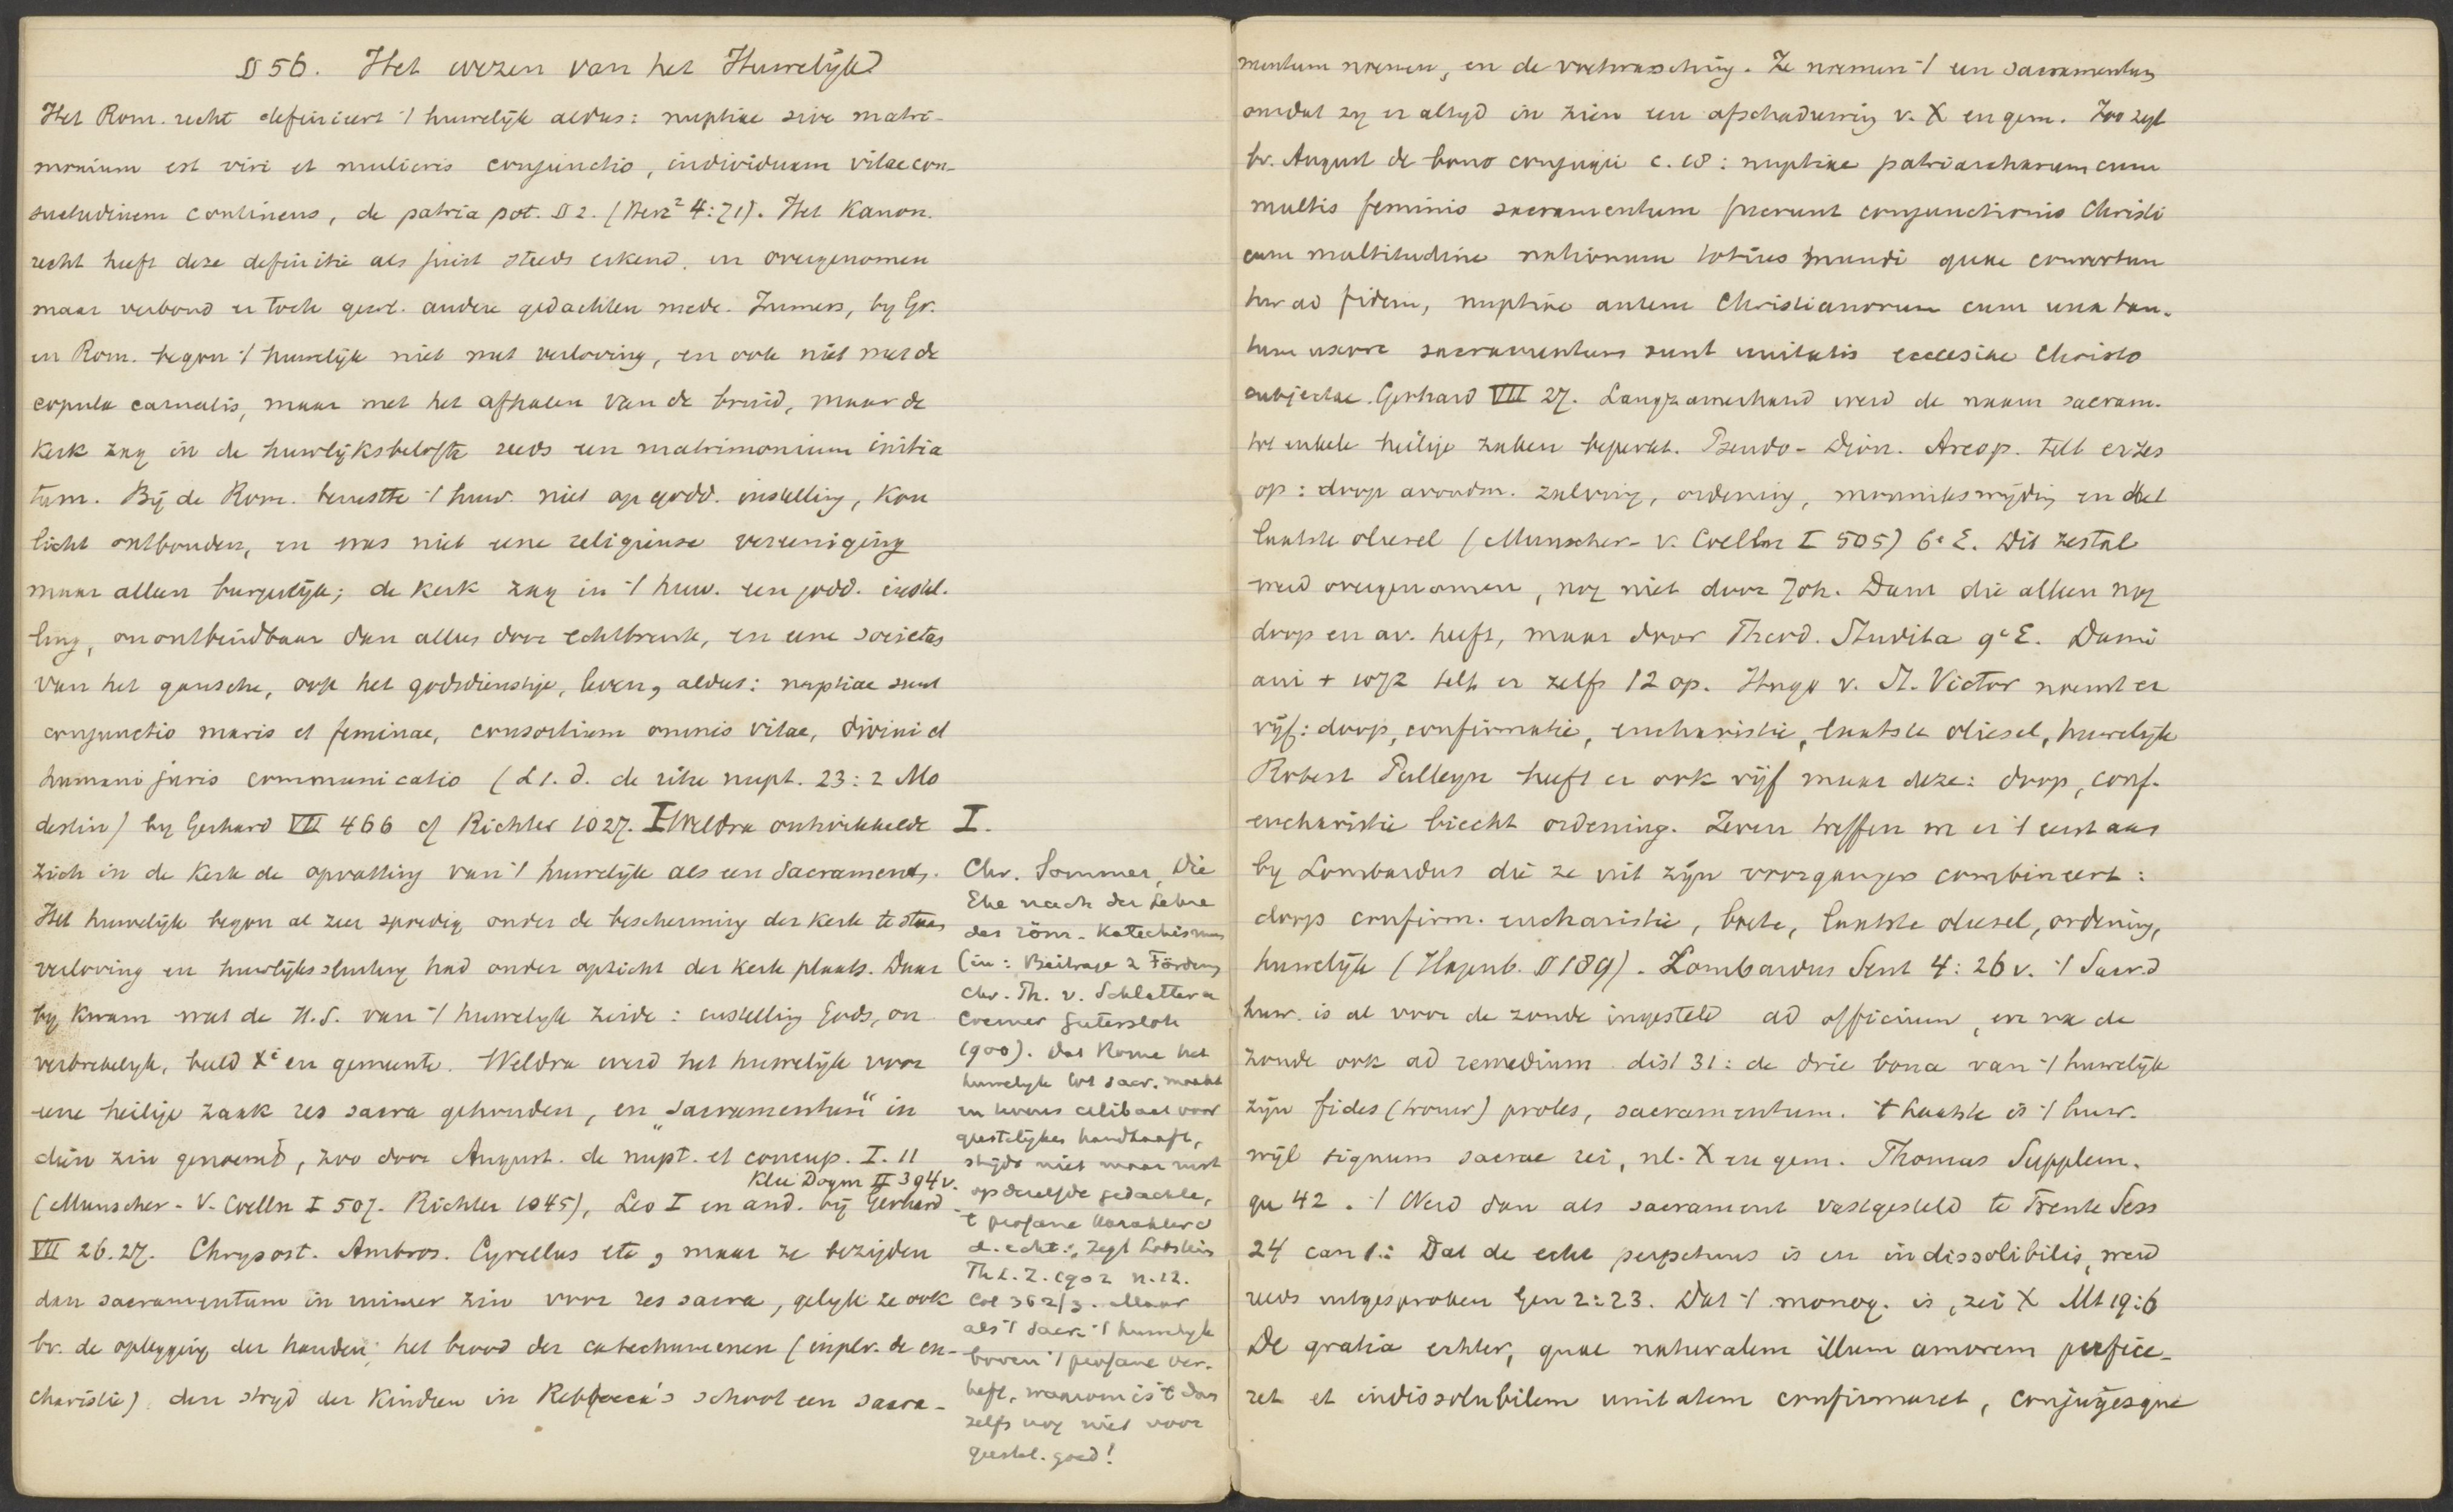 § 56. Het wezen van het Huwelijk
Het Rom. recht definieert 't huwelijk aldus: nuptiae sive matri-
monium est viri et mulieris conjunctio, individuam vitae con-
suetudinem continens, de patria pot. § 2. (Herz² 4:71). Het Kanon.
recht heeft deze definitie als juist steeds erkend en overgenomen
maar verbond er toch gew. andere gedachten mede. Immers, by Gr.
en Rom. begon 't huwelijk niet met verloving, en ook niet met de
copula carnalis, maar met het afhalen van de bruid, maar de
Kerk zag in de huwlijksbelofte reeds een matrimonium initia
tum. Bij de Rom. berustte 't huw. niet op godd. instelling, kon
licht ontbonden, en was niet eene religieuse vereeniging
maar alleen burgerlijk; de Kerk zag in 't huw. een godd. instel.
ling, onontbindbaar dan alleen door echtbreuk, en eene societas
van het gansche, ook het godsdienstige, leven, aldus: nuptiae sunt
conjunctio maris et feminae, consortium omnis vitae, divini et
humani juris communicatio (L 1. d. de ritu nupt. 23:2 Mo
destin) by Gerhard VII 466 cf Richter 1027. I Weldra ontwikkelde
zich in de Kerk de opvatting van 't huwelijk als een Sacrament.
Het huwelijk begon al zeer spoedig onder de bescherming der Kerk te staan
verloving en huwlijkssluiting had onder opzicht der Kerk plaats. Daar
bij kwam wat de H.S. van 't huwelyk zeide: instelling Gods, on
verbrekelyk, beeld Xi en gemeente. Weldra werd het huwelijk voor
eene heilige zaak res sacra gehouden, en „sacramentum" in
dien zin genoemd, zoo door August. de nupt. et concup. I. 11
Klee Dogm II 394 v.
(Munscher-v. Coelln I 507. Richter 1045), Leo I en and. bij Gerhard
VII 26.27. Chrysost. Ambros. Cyrillus etc, maar ze bezigden
dan sacramentum in ruimer zin voor res sacra, gelijk ze ook
bv. de oplegging der handen, het brood der catechumenen (in plv. de eu-
charistie) den stryd der Kindren in Rebecca's schoot een sacra-
I.
Chr. Sommer, Die
Ehe nach der Lehre
des röm. Katechismus
(in: Beitrage z Förderg
chr. Th. v. Schlatter u
Cremer Gutersloh
1900). Dat Rome het
huwelyk tot sacr. maakt
en tevens celibaat voor
geestelijken handhaaft,
strijdt niet maar rust
op dezelfde gedachte,
't profane karakter v
d. echt., zegt Lobstein
Th L. Z. 1902 n. 12.
Col 362/3. Maar
als 't sacr 't huwelyk
boven 't profane ver-
heft, waarom is 't dan
zelfs nog niet voor
geestel. goed!
mentum noemen, en de voetwassching. Ze noemen 't een sacramentum
omdat zy er altyd in zien een afschaduwing v. X en gem. Zoo zegt
bv. August de bono conjugii c. 18: nuptiae patriarcharum cum
multis feminis sacramentum fuerunt conjunctionis Christi
cum multitudine nationum totius mundi quae convertun
tur ad fidem, nuptiae autem Christianorum cum una tan.
tum uxore sacramentum sunt unitatis ecclesiae Christo
subjectae. Gerhard VII 27. Langzamerhand werd de naam sacram.
tot enkele heilige zaken beperkt. Pseudo-Dion. Areop. telt er zes
op: doop avondm. zalving, ordening, monnikswijding en het
laatste oliesel (Munscher-v. Coelln I 505) 6e E. Dit zestal
werd overgenomen, nog niet door Joh. Dam die alleen nog
doop en av. heeft, maar door Theod. Studita 9e E. Dami
ani + 1072 telt er zelfs 12 op. Hugo v. St. Victor noemt er
vijf: doop, confirmatie, eucharistie, laatste oliesel, huwelijk
Robert Pulleyn heeft er ook vijf maar deze: doop, conf.
eucharistie biecht ordening. Zeven treffen we er 't eerst aan
by Lombardus die ze uit zijn voorgangers combineert:
doop confirm. eucharistie, boete, laatste oliesel, ordening,
huwelijk (Hagenb. § 189). Lombardus Sent 4: 26 v. 't Sacr. d
huw. is al voor de zonde ingesteld ad officium, en na de
zonde ook ad remedium dist 31: de drie bona van 't huwelijk
zijn fides (trouw) proles, sacramentum. 't laatste is 't huw.
wijl signum sacrae rei, nl. X en gem. Thomas Supplem.
qu 42. 't Werd dan als sacrament vastgesteld te Trente Sess
24 can 1.: Dat de echt perpetuus is en indissolibilis, werd
reeds uitgesproken Gen 2:23. Dat 't monog. is, zei X Mt 19:6
De gratia echter, quae naturalem illum amorem perfice-
ret et indissolubilem unitatem confirmaret, conjugesque